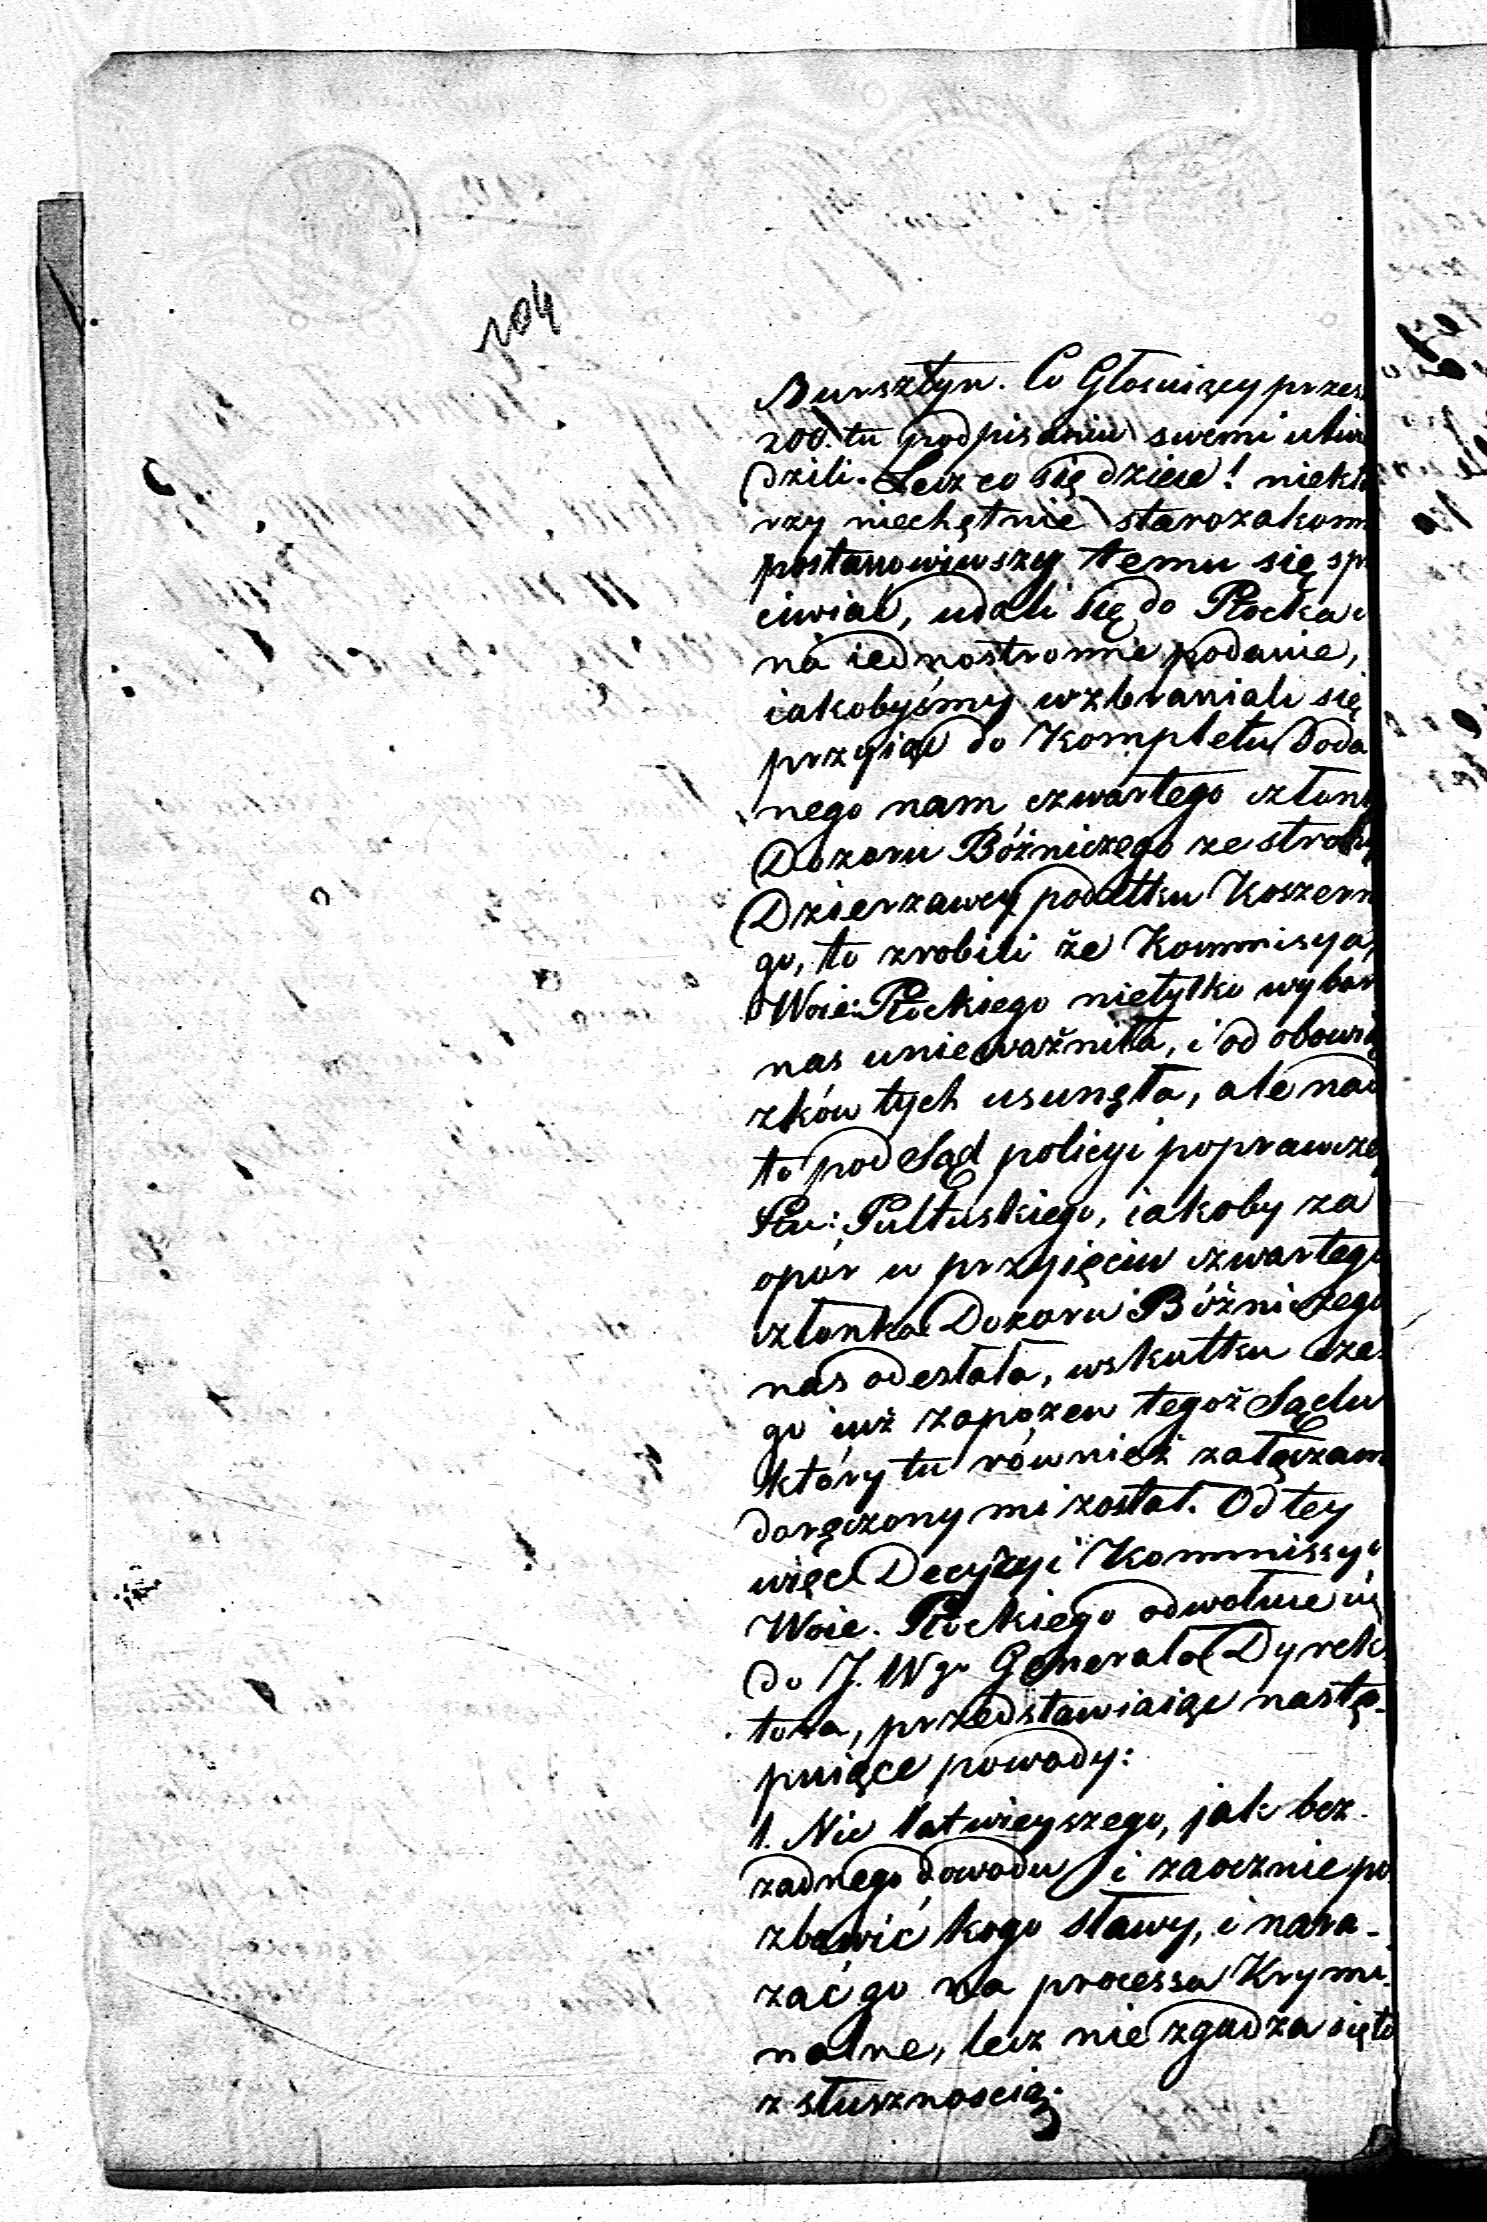 704
Bursztyn. Co Głosuiący przes
200. tu podpisaniu swemi utwi
dzili. Lecz co się dzieie! niektó
rzy niechętnie starozakonn
postanowiwszy temu się sp
ciwiać, udali się do Płocka i
na iednostronne podanie,
iakobyśmy wzbraniali się
przyiąć do Kompletu Doda
nego nam czwartego człon
Dozoru Bóżniczego ze strony
Dzierzawcy podatku Koszern
go, to zrobili że Kommisya
Woie: Płockiego nietylko wybor
nas unieważniła, i od obowią
zków tych usunęła, ale nad
to pod Sąd policyi poprawczey
Ptu: Pułtuskiego, iakoby za
opór w przyięciu czwartego
członka Dozoru Bóżniczego
nas odesłała, wskutku cze-
go iuż zapozew tegoż Sądu
który tu również załączam
doręczony mi został. Od tey
więc Decyzyi Kommissyi
Woie. Płockiego odwołuie się
do J. Wgo Generała Dyrek-
tora, przedstawiaiąc nastę-
puiące powody:
1. Nic łatwieyszego, jak bez
zadnego dowodu i zaocznie po
zbawić kogo sławy, i nara-
zać go na processa Krymi-
nalne, lecz nie zgadza się to
z słusznością;